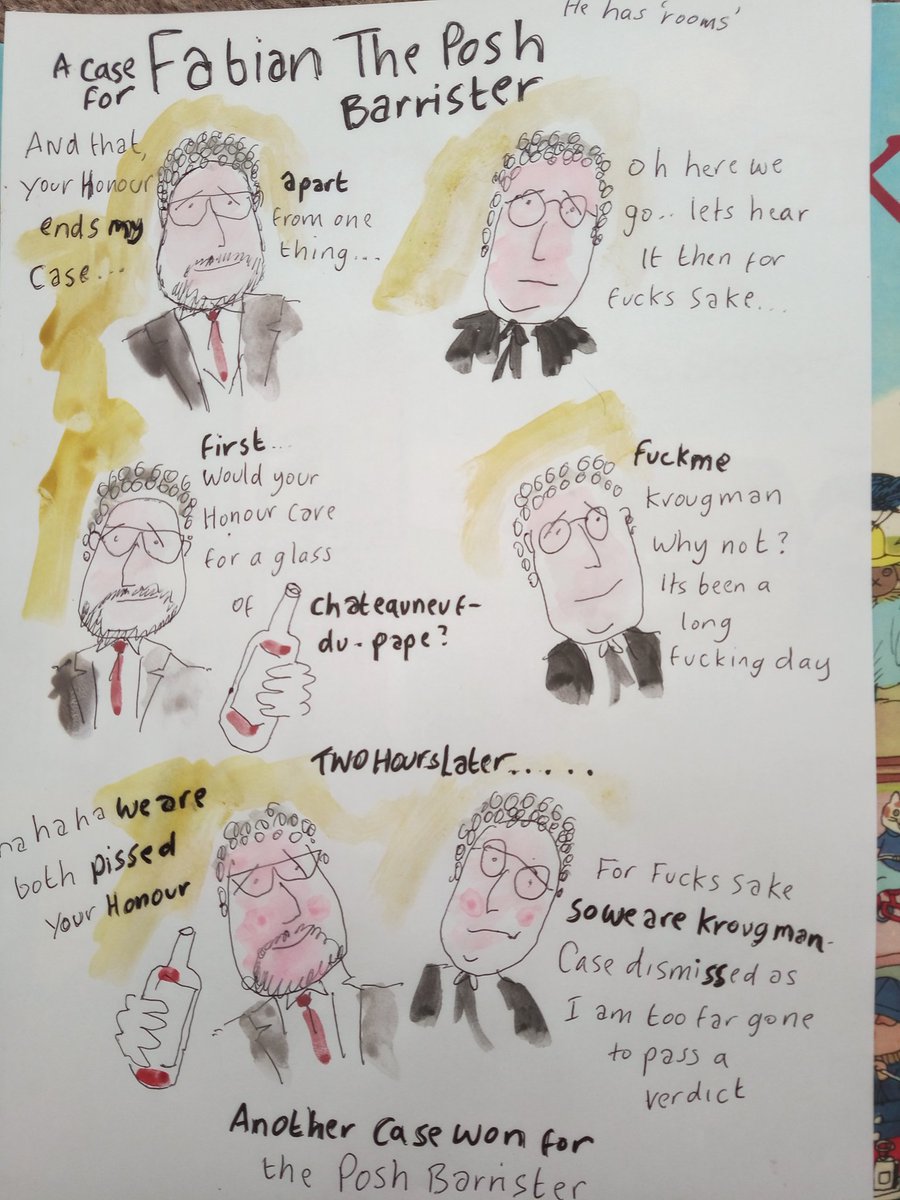 He has 'rooms'
A case for
Fabian The Posh
Barrister
And that,
your Honour
ends my
case...
apart
from one
thing...
oh here we
go.. lets hear
It then for
fucks sake...
first...
would your
Honour care
for a glass
of
chateauneuf-
du-pape?
fuck me
krougman
why not?
Its been a
long
fucking day
TWO Hours Later.....
ha ha ha we are
both pissed
your Honour
For Fucks sake
so we are krougman-
Case dismissed as
I am too far gone
to pass a
verdict
Another case won for
the Posh Barrister